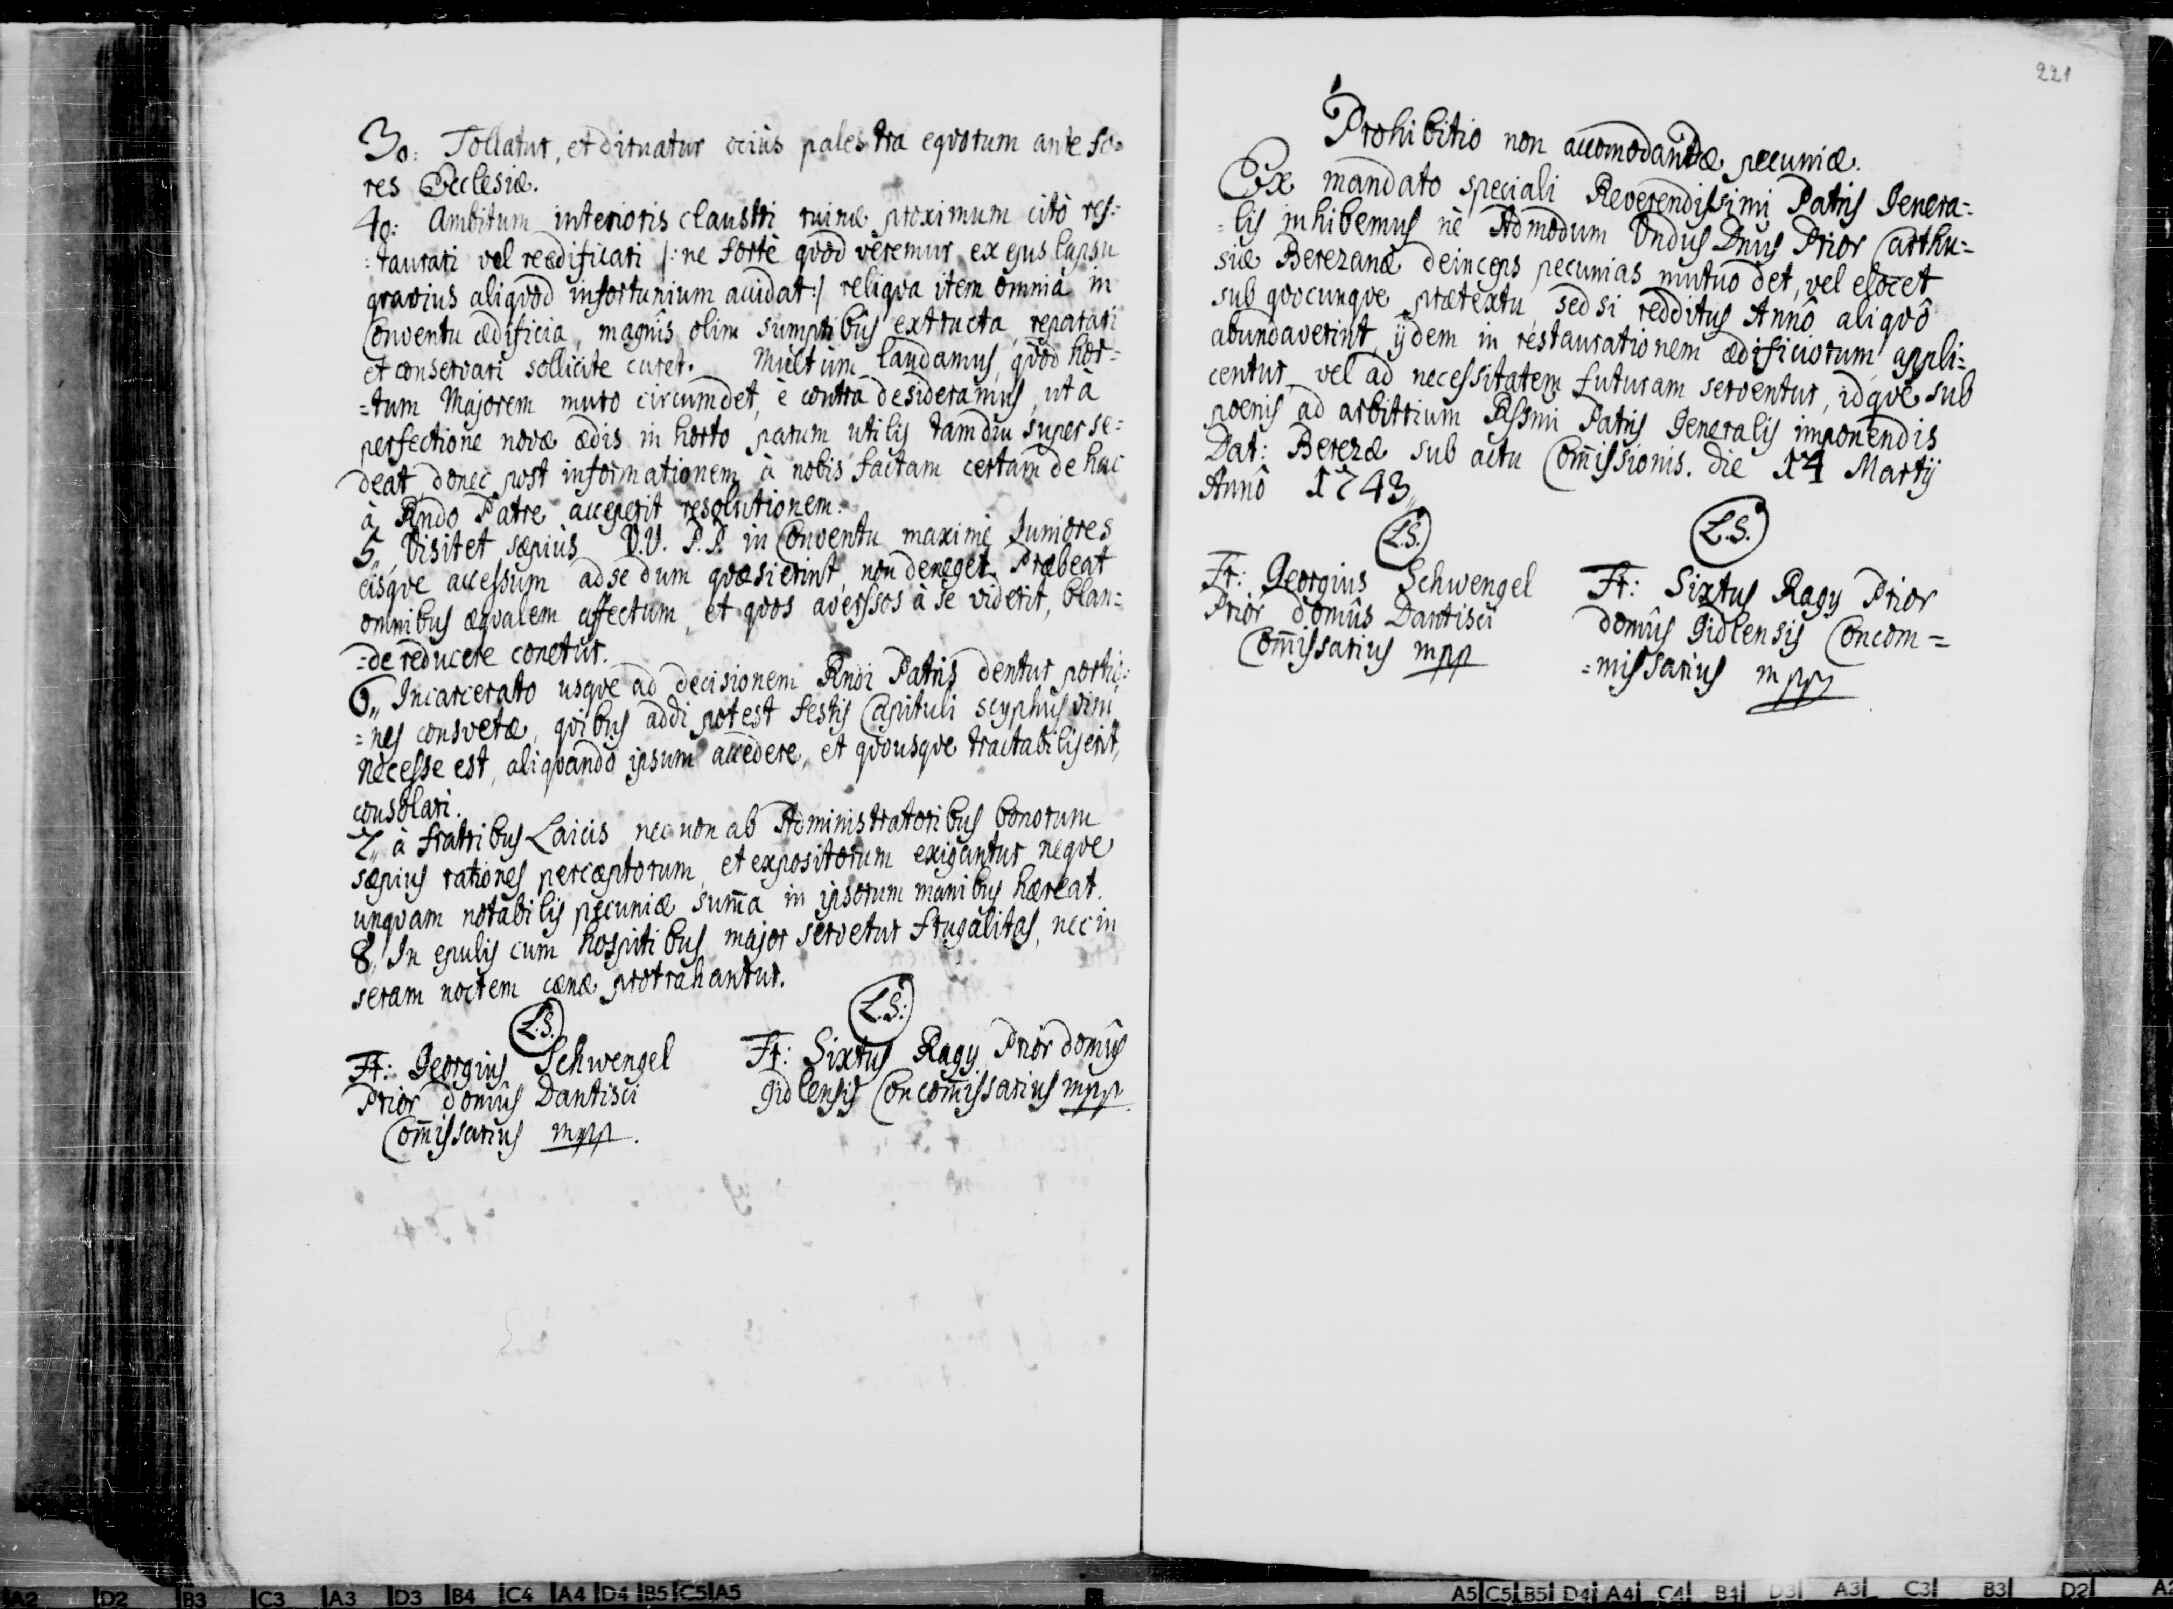 3o: Tollatur, et diruatur ociùs palestra equorum ante fo=
res Ecclesiæ.
4o: Ambitum interioris claustri ruinæ proximum citò res=
=taurari vel reædificari /: ne fortè quod veremur ex ejus lapsu
gravius aliquod infortunium accidat :/ reliqva item omnia in
Conventu ædificia, magnîs olim sumptibus extructa, reparari
et conservari sollicite curet. Multùm laudamus, quod hor=
=tum Majorem muro circumdet, è contra desideramus, ut à
perfectione novæ ædis in horto parum utilis tamdiu superse=
deat donec post informationem à nobis factam certam de hac
à Rndo Patre acceperit resolutionem.
5,, Visitet sæpius V.V. P.P. in Conventu maximè Juniores
eisqve accessum ad se dum qvæsierint, non deneget. Præbeat
omnibus æqvalem affectum, et qvos averssos à se viderit, blan=
=de reducere conetur.
6,, Incarcerato usqve ad decisionem Rndi Patris dentur portio=
=nes consvetæ, qvibus addi potest festis Capituli scyphus vini
necesse est, aliqvando ipsum accedere, et qvousqve tractabilis erit,
consolari.
7,, à fratribus Laicis necnon ab Administratoribus bonorum
sæpius rationes perceptorum, et expositorum exigantur neqve
unqvam notabilis pecuniæ sum̄a in ipsorum manibus hæreat.
8,, In epulis cum hospitibus major servetur frugalitas, nec in
seram noctem cænæ protrahantur.
L.S. L.S.
Fr: Georgius Schwengel
Prior domûs Dantisci
Com̄issarius mpp.
Fr: Sixtus Ragy Prior domûs
Gidlensis Concom̄issarius mpp.
221
Prohibitio non accomodandæ pecuniæ.
Ex mandato speciali Reverendissimi Patris Genera=
=lis inhibemus nè Admodum Vndus Dnus Prior Carthu=
siæ Berezanæ deinceps pecunias mutuo det, vel elocet
sub qvocunqve prætextu, sed si redditus Annô aliqvô
abundaverint, ijdem in restaurationem ædificiorum appli=
centur, vel ad necessitatem futuram serventur, idqve sub
poenis ad arbitrium Rssmi Patris Generalis imponendis
Dat: Berezæ sub actu Com̄issionis. die 14 Martij
Annô 1743,,
L.S. L.S.
Fr: Georgius Schwengel
Prior domûs Dantisci
Com̄issarius mpp
Fr: Sixtus Ragy Prior
domûs Gidlensis Concom=
=missarius mpp